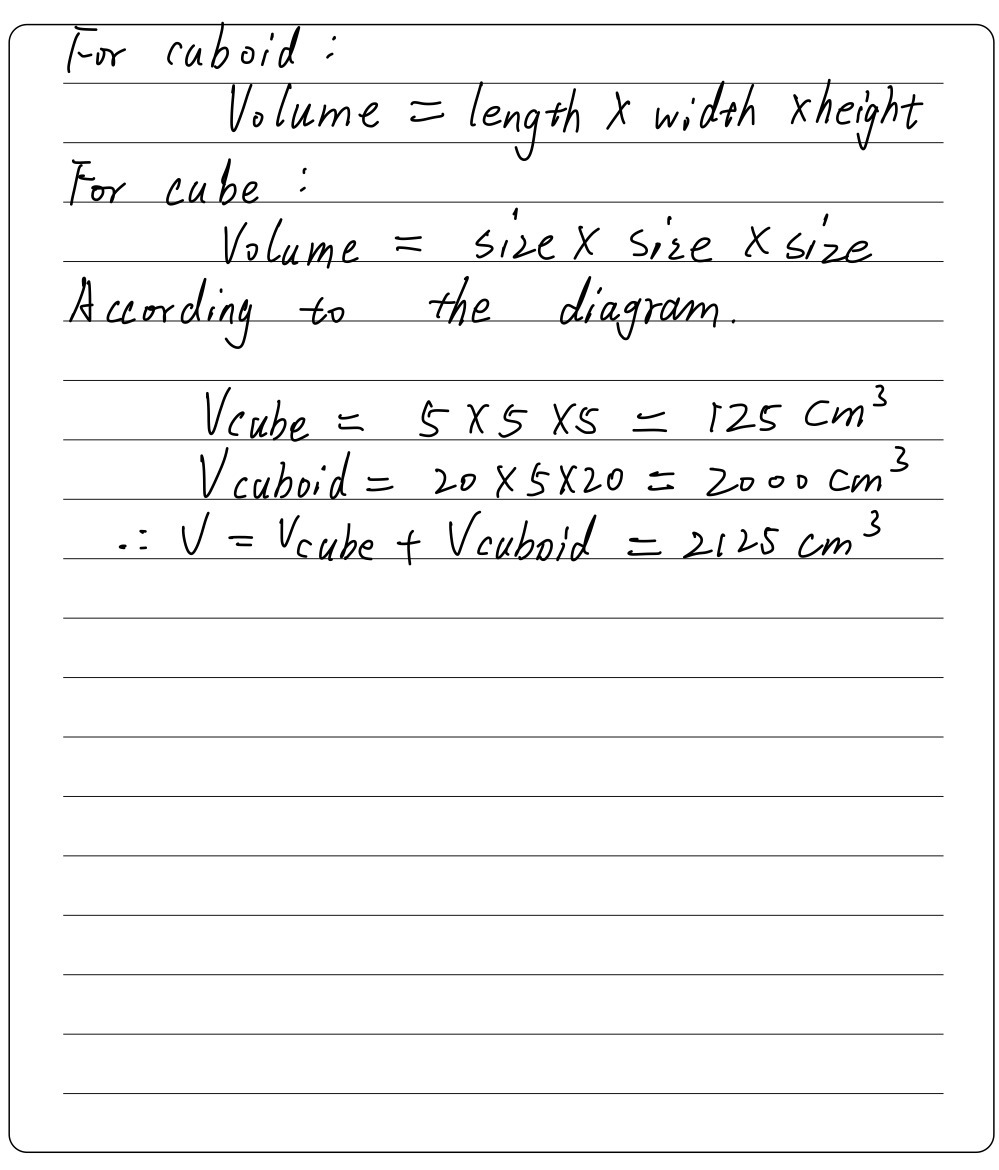 For cuboid :
Volume = length × width × height
For cube :
Volume = size × size × size
According to the diagram.
Vcube = 5 × 5 × 5 = 125 cm³
Vcuboid = 20 × 5 × 20 = 2000 cm³
∴ V = Vcube + Vcuboid = 2125 cm³